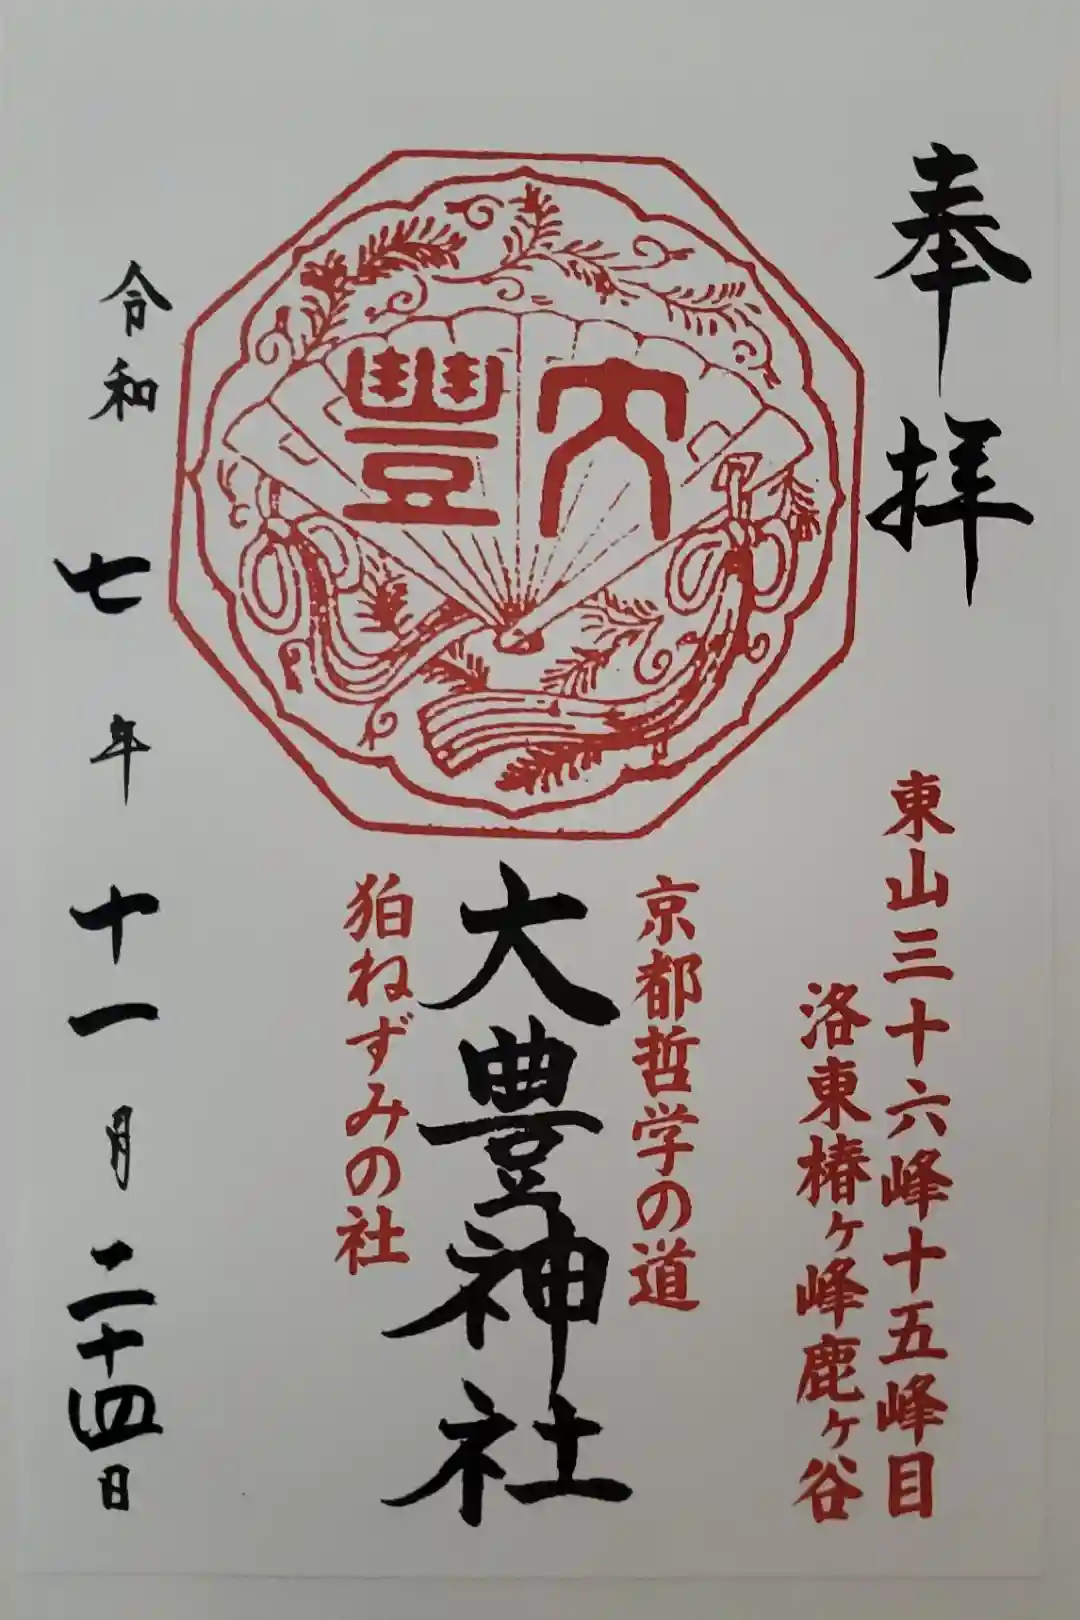 奉拝
東山三十六峰十五峰目
洛東椿ヶ峰鹿ヶ谷
京都哲学の道
大豊
大豊神社
狛ねずみの社
令和七年十一月二十四日